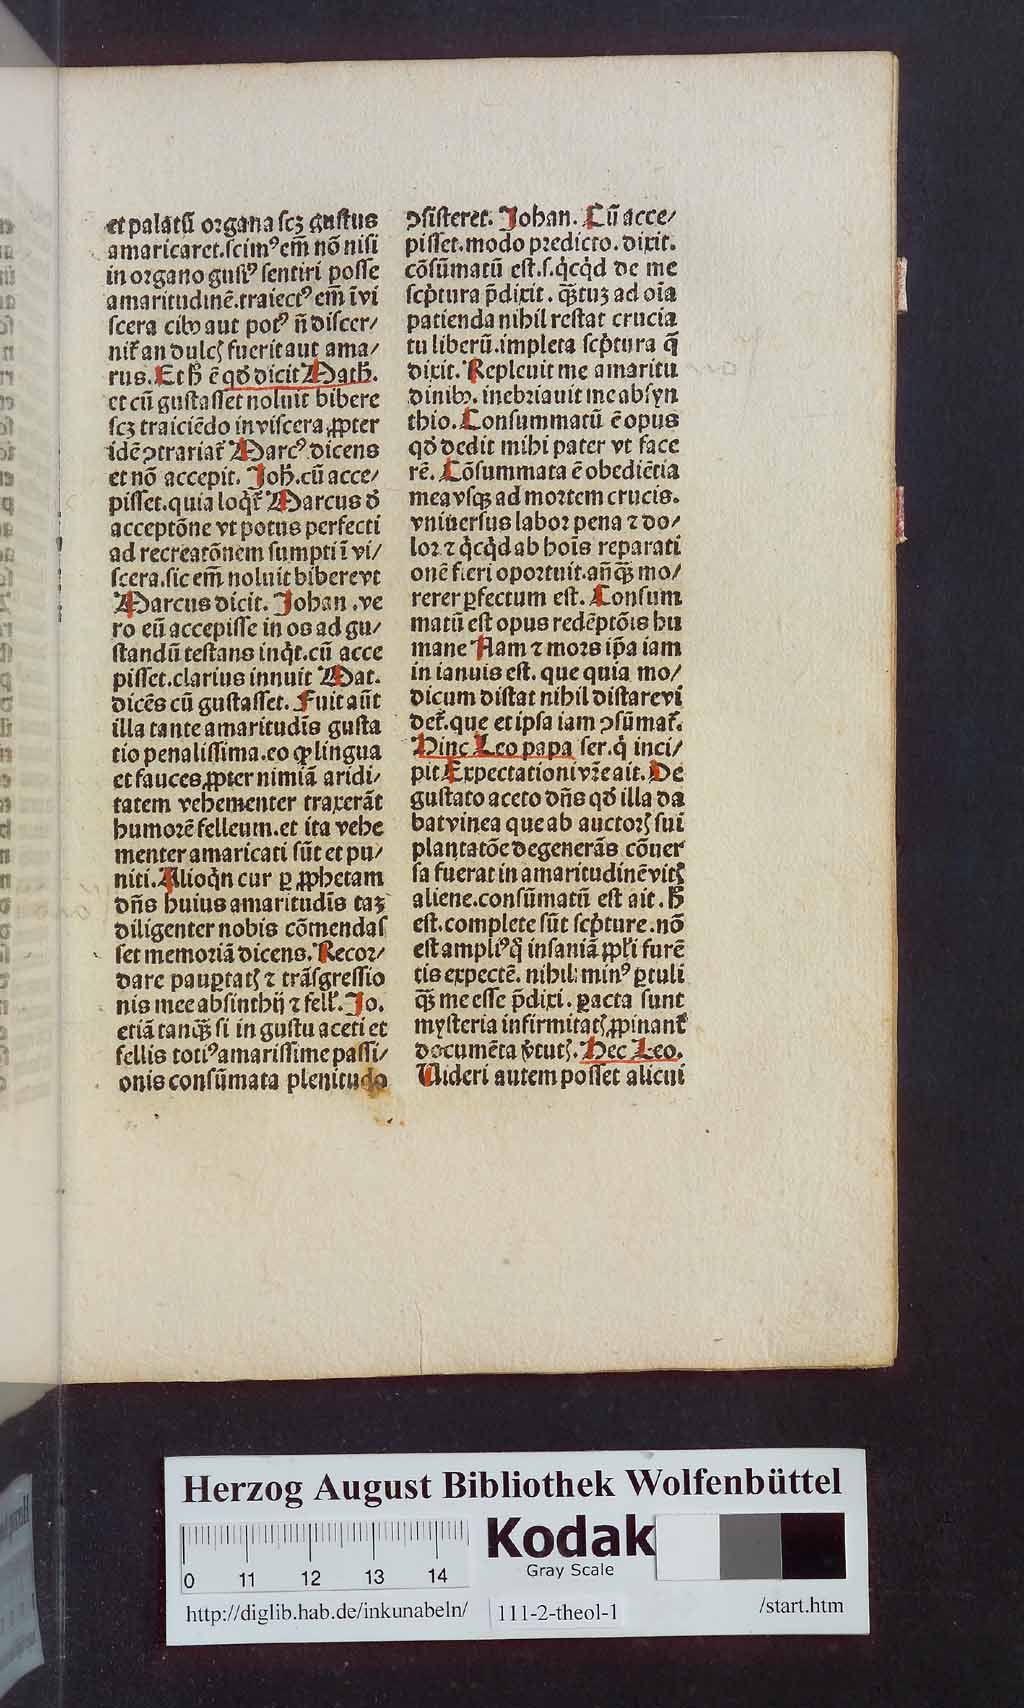 et palatū organa scʒ gustus
amaricaret.scimꝰ em̄ nō nisi
in organo gustꝰ sentiri posse
amaritudinē.traiectꝰ em̄ ī vi
scera cibꝰ aut potꝰ n̄ discer/
nit᷑ an dulcꝭ fuerit aut ama/
rus. Et h̄ ē qđ dicit Math̄.
et cū gustasset noluit bibere
scʒ traiciēdo in viscera ꝓpter
idē ↄtrariat᷑ Marcꝰ dicens
et nō accepit. Joh̄.cū acce/
pisset.quia loqͥt᷑ Marcus đ
acceptōne vt potus perfecti
ad recreatōnem sumpti ī vi/
scera.sic em̄ noluit bibere vt
Marcus dicit. Johan .ve
ro eū accepisse in os ad gu/
standū testans inqͥt.cū acce
pisset.clarius innuit Mat.
dicēs cū gustasset. Fuit aūt
illa tante amaritudīs gusta
tio penalissima.eo ꝙ lingua
et fauces ꝓpter nimiā aridi/
tatem vehementer traxerāt
humorē felleum.et ita vehe
menter amaricati sūt et pu/
niti. Alioqͥn cur ꝑ ꝓphetam
dn̄s huius amaritudīs taʒ
diligenter nobis cōmendas
set memoriā dicens. Recor/
dare pauꝑtatꝭ ⁊ trāsgressio
nis mee absinthij ⁊ fell᷑. Jo.
etiā tanqͣꝫ si in gustu aceti et
fellis totiꝰ amarissime passi/
onis consūmata plenitudo
ↄsisteret. Johan. Cū acce/
pisset.modo predicto. dixit.
cōsūmatū est.s.qͥcqͥd de me
scpͥtura p̄dixit . qͣꝫtuʒ ad oīa
patienda nihil restat crucia
tu liberū.impleta scpͥtura q̄
dixit. Repleuit me amaritu
dinibꝰ. inebriauit me absyn
thio. Consummatū ē opus
qđ dedit mihi pater vt face
rē. Cōsummata ē obediētia
mea vsqꝫ ad mortem crucis.
vniuersus labor pena ⁊ do/
lor ⁊ qͥcqͥd ab hoīs reparati
onē fieri oportuit.an̄qͣꝫ mo/
rerer ꝑfectum est. Consum
matū est opus redēptōis hu
mane Nam ⁊ mors ip̄a iam
in ianuis est. que quia mo/
dicum distat nihil distare vi
det᷑.que et ipsa iam ↄsūmat᷑.
Hinc Leo papa ser.qͥ inci/
pit Expectationi vr̄e ait. De
gustato aceto dn̄s qđ illa da
bat vinea que ab auctorꝭ sui
plantatōe degenerās cōuer
sa fuerat in amaritudinē vitꝭ
aliene.consūmatū est ait . h̄
est.complete sūt scpͥture.nō
est ampliꝰ qͥ insaniā ꝓpl̄i furē
tis expectē. nihil minꝰ ꝑtuli
qͣꝫ me esse p̄dixi . ꝑacta sunt
mysteria infirmitatꝭ ꝓpinant᷑
documēta v̓tutꝭ. Hec Leo.
Uideri autem posset alicui
Herzog August Bibliothek Wolfenbüttel
0 11 12 13 14
Kodak
Gray Scale
http://diglib.hab.de/inkunabeln/
111-2-theol-1
/start.htm